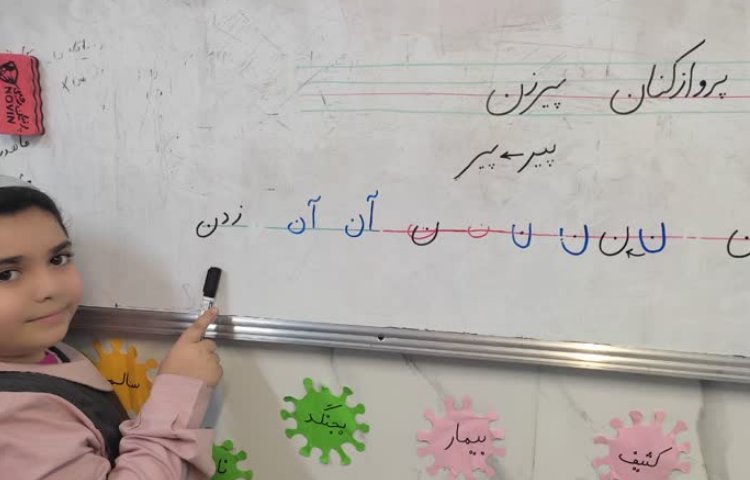 پروازکنان پیرزن
پیر ← پیر
ن ن ن ن ن ن ن آن آن زدن
NOVIN
سالم
بجنگد
بیمار
کثیف